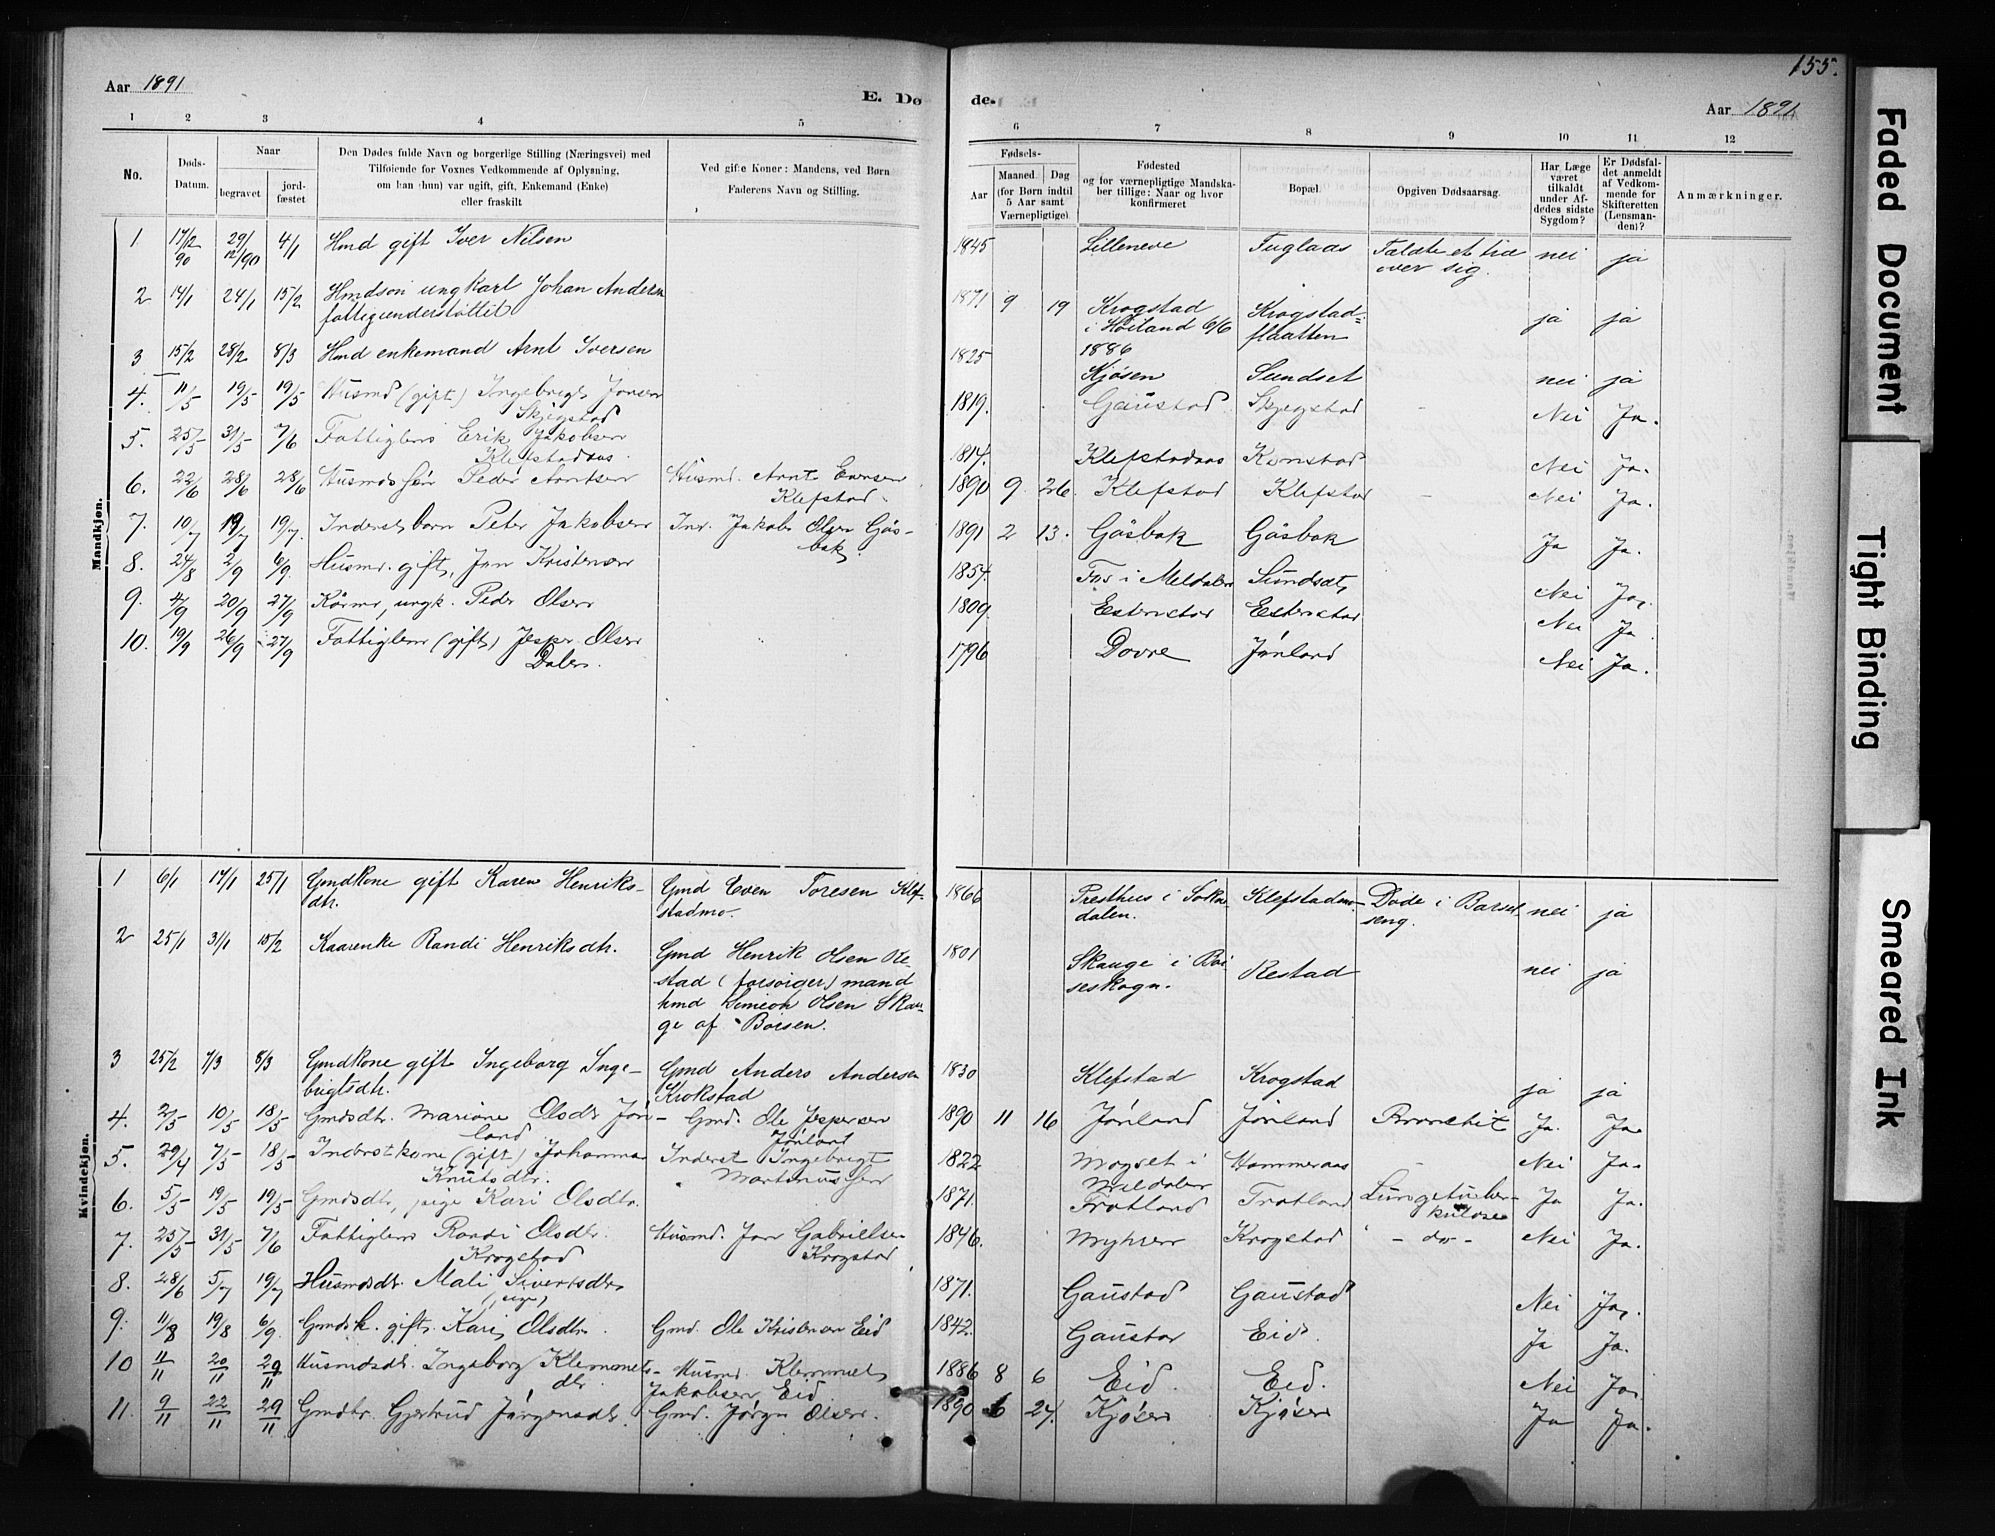 155.
Aar 1891
E. Dø
de.
Aar 1891
1 2 3 4 5
6 7 8 9 10 11 12
No.
Døds-
Datum.
Naar
begravet
jord-
fæstet
Den Dødes fulde Navn og borgerlige Stilling (Næringsvei) med
Tilføiende for Voxnes Vedkommende af Oplysning,
om han (hun) var ugift, gift, Enkemand (Enke)
eller fraskilt
Ved gifte Koner: Mandens, ved Børn
Faderens Navn og Stilling.
Fødsels-
Aar
Maaned
Dag
(for Børn indtil
5 Aar samt
Værnepligtige)
Fødested
og for værnepligtige Mandska-
ber tillige: Naar og hvor
konfirmeret
Bopæl.
Opgiven Dødsaarsag.
Har Læge
været
tilkaldt
under Af-
dødes sidste
Sygdom?
Er Dødsfal-
det anmeldt
af Vedkom-
mende for
Skifteretten
(Lensman-
den)?
Anmærkninger.
Mandkjøn.
1 17/12 90 29/12/90 4/1 Hmd gift Iver Nilsen 1845 Lilleneve Fuglaas Faldt et træ nei ja
over sig.
2 14/1 24/1 15/2 Hmdsøn ungkarl Johan Andersn 1871 9 19 Krogstad Krogstad= ja ja
fattigunderstøttet i Høiland 6/6 flaatten
1886
3 15/2 28/2 8/3 Hmd enkemand Arnt Iversen 1825 Kjøsen Sundset nei ja
4. 11/5 19/5 19/5 Husmd (gift) Ingebrigt Jonsen 1819. Gaustad Skjegstad Nei Ja.
Skjegstad
5. 25/5 31/5 7/6 Fattiglem Erik Jakobsen 1814. Klefstadaas Konstad Nei Ja.
Klefstadaas.
6. 22/6 28/6 28/6 Husmds søn Peder Arntsen Husmd. Arnt Evensen 1890 9. 26. Klefstad Klefstad Nei Ja.
Klefstad
7. 10/7 19/7 19/7. Inderst barn Peter Jakobsen Ind. Jakob Olsen Gås- 1891 2 13. Gåsbak Gåsbak Ja Ja.
bak
8. 24/8 2/9 6/9. Husmd. gift, Jon Kristensen 1854. Fos i Meldalen Sundset, Nei Ja.
9. 4/9 20/9 27/9 Kårmd, ungk. Peder Olsen 1809. Estenstad Estenstad Nei Ja
10. 19/9 26/9 27/9 Fattiglem (gift) Jesper Olsen 1796 Dovre Jönland Nei Ja.
Dalen.
Kvindekjøn.
1 6/1 17/1 25/1 Gmdkone gift Karen Henriks- Gmd Even Toresen Klef- 1866 Presthus i Sokne- Klefstadmo Døde i Barsel nei ja
dtr. stadmo. dalen. seng.
2 25/1 31/1 15/2 Kaarenke Randi Henriksdtr. Gmd Henrik Olsen Re- 1801 Skauge i Bør- Restad nei ja
stad (forsørger) mand seskogn.
hmd Simeon Olsen Skau-
ge af Børsen.
3 25/2 7/3 8/3 Gmdkone gift Ingeborg Inge- Gmd Anders Andersen 1830 Klefstad Krogstad ja ja
brigtsdtr. Krokstad
4. 2/5 10/5 18/5 Gmdsdtr. Mariane Olsdtr Jön- Gmd. Ole Jespersen 1890 11 16 Jönland Jönland Bronchit Ja. Ja.
land Jönland
5. 29/4 7/5 18/5 Inderstkone (gift) Johanna Inderst Ingebrigt 1822 Mogset i Hammeraas Nei Ja.
Knutsdtr. Martinussen Meldalen
6. 5/5 19/5 19/5 Gmdsdtr, pige Kari Olsdtr. 1871. Frotland Frotland Lungetuber- Ja Ja.
kulose
7. 25/5 31/5 7/6 Fattiglem Randi Olsdtr. Husmd. Jon Gabrielsen 1846. Myhren Krogstad - do - Nei Ja.
Krogstad Krogstad
8. 28/6 5/7 19/7 Husmdsdtr. Mali Sivertsdtr 1871. Gaustad Gaustad Nei Ja.
(pige)
9. 11/8 19/8 6/9. Gmdsk. gift. Kari Olsdtr. Gmd. Ole Kristensen Eid 1842. Gaustad Eid. Ja Ja.
10 11/11 20/11 29/11 Husmdsdtr. Ingeborg Klemmets- Husmd Klemmet 1886 8 6 Eid. Eid. Nei Ja.
dtr. Jakobsen Eid.
11. 9/11 22/11 29/11 Gmdtr. Gjertrud Jörgensdtr. Gmd. Jörgn Olsen. 1890 6 27. Kjösen Kjösen Ja Ja.
Faded Document
Tight Binding
Smeared Ink